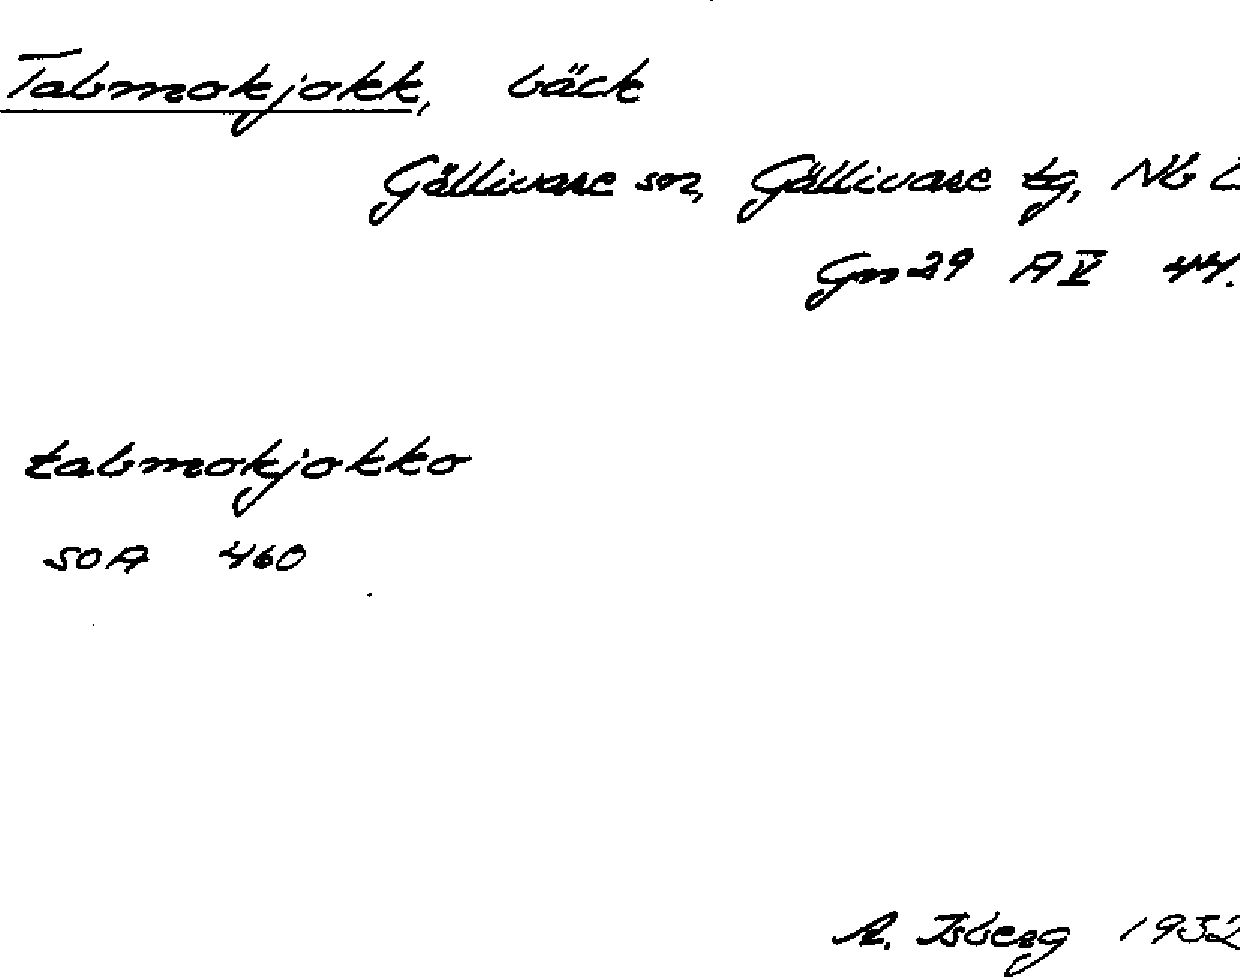 Tabmokjokk, bäck
Gällivare sn, Gällivare tg, Nb L
Gm 29 A V 44.
tabmokjokko
SOA 460
A. Isberg 1932